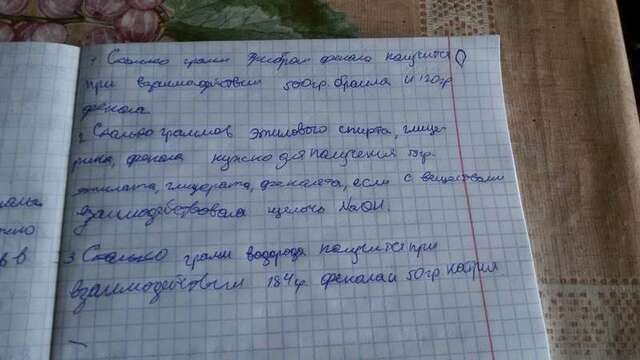 1 Сколько грамм трибром фенола получится
при взаимодействии 500гр. брома и 120гр
фенола.
2. Сколько граммов этилового спирта, глице-
рина, фенола нужно для получения гр.
этилата, глицерата, фенолята, если с веществами
взаимодействовала щелочь NaOH.
3 Сколько грамм водорода получится при
взаимодействии 184гр. фенола и 50гр натрия